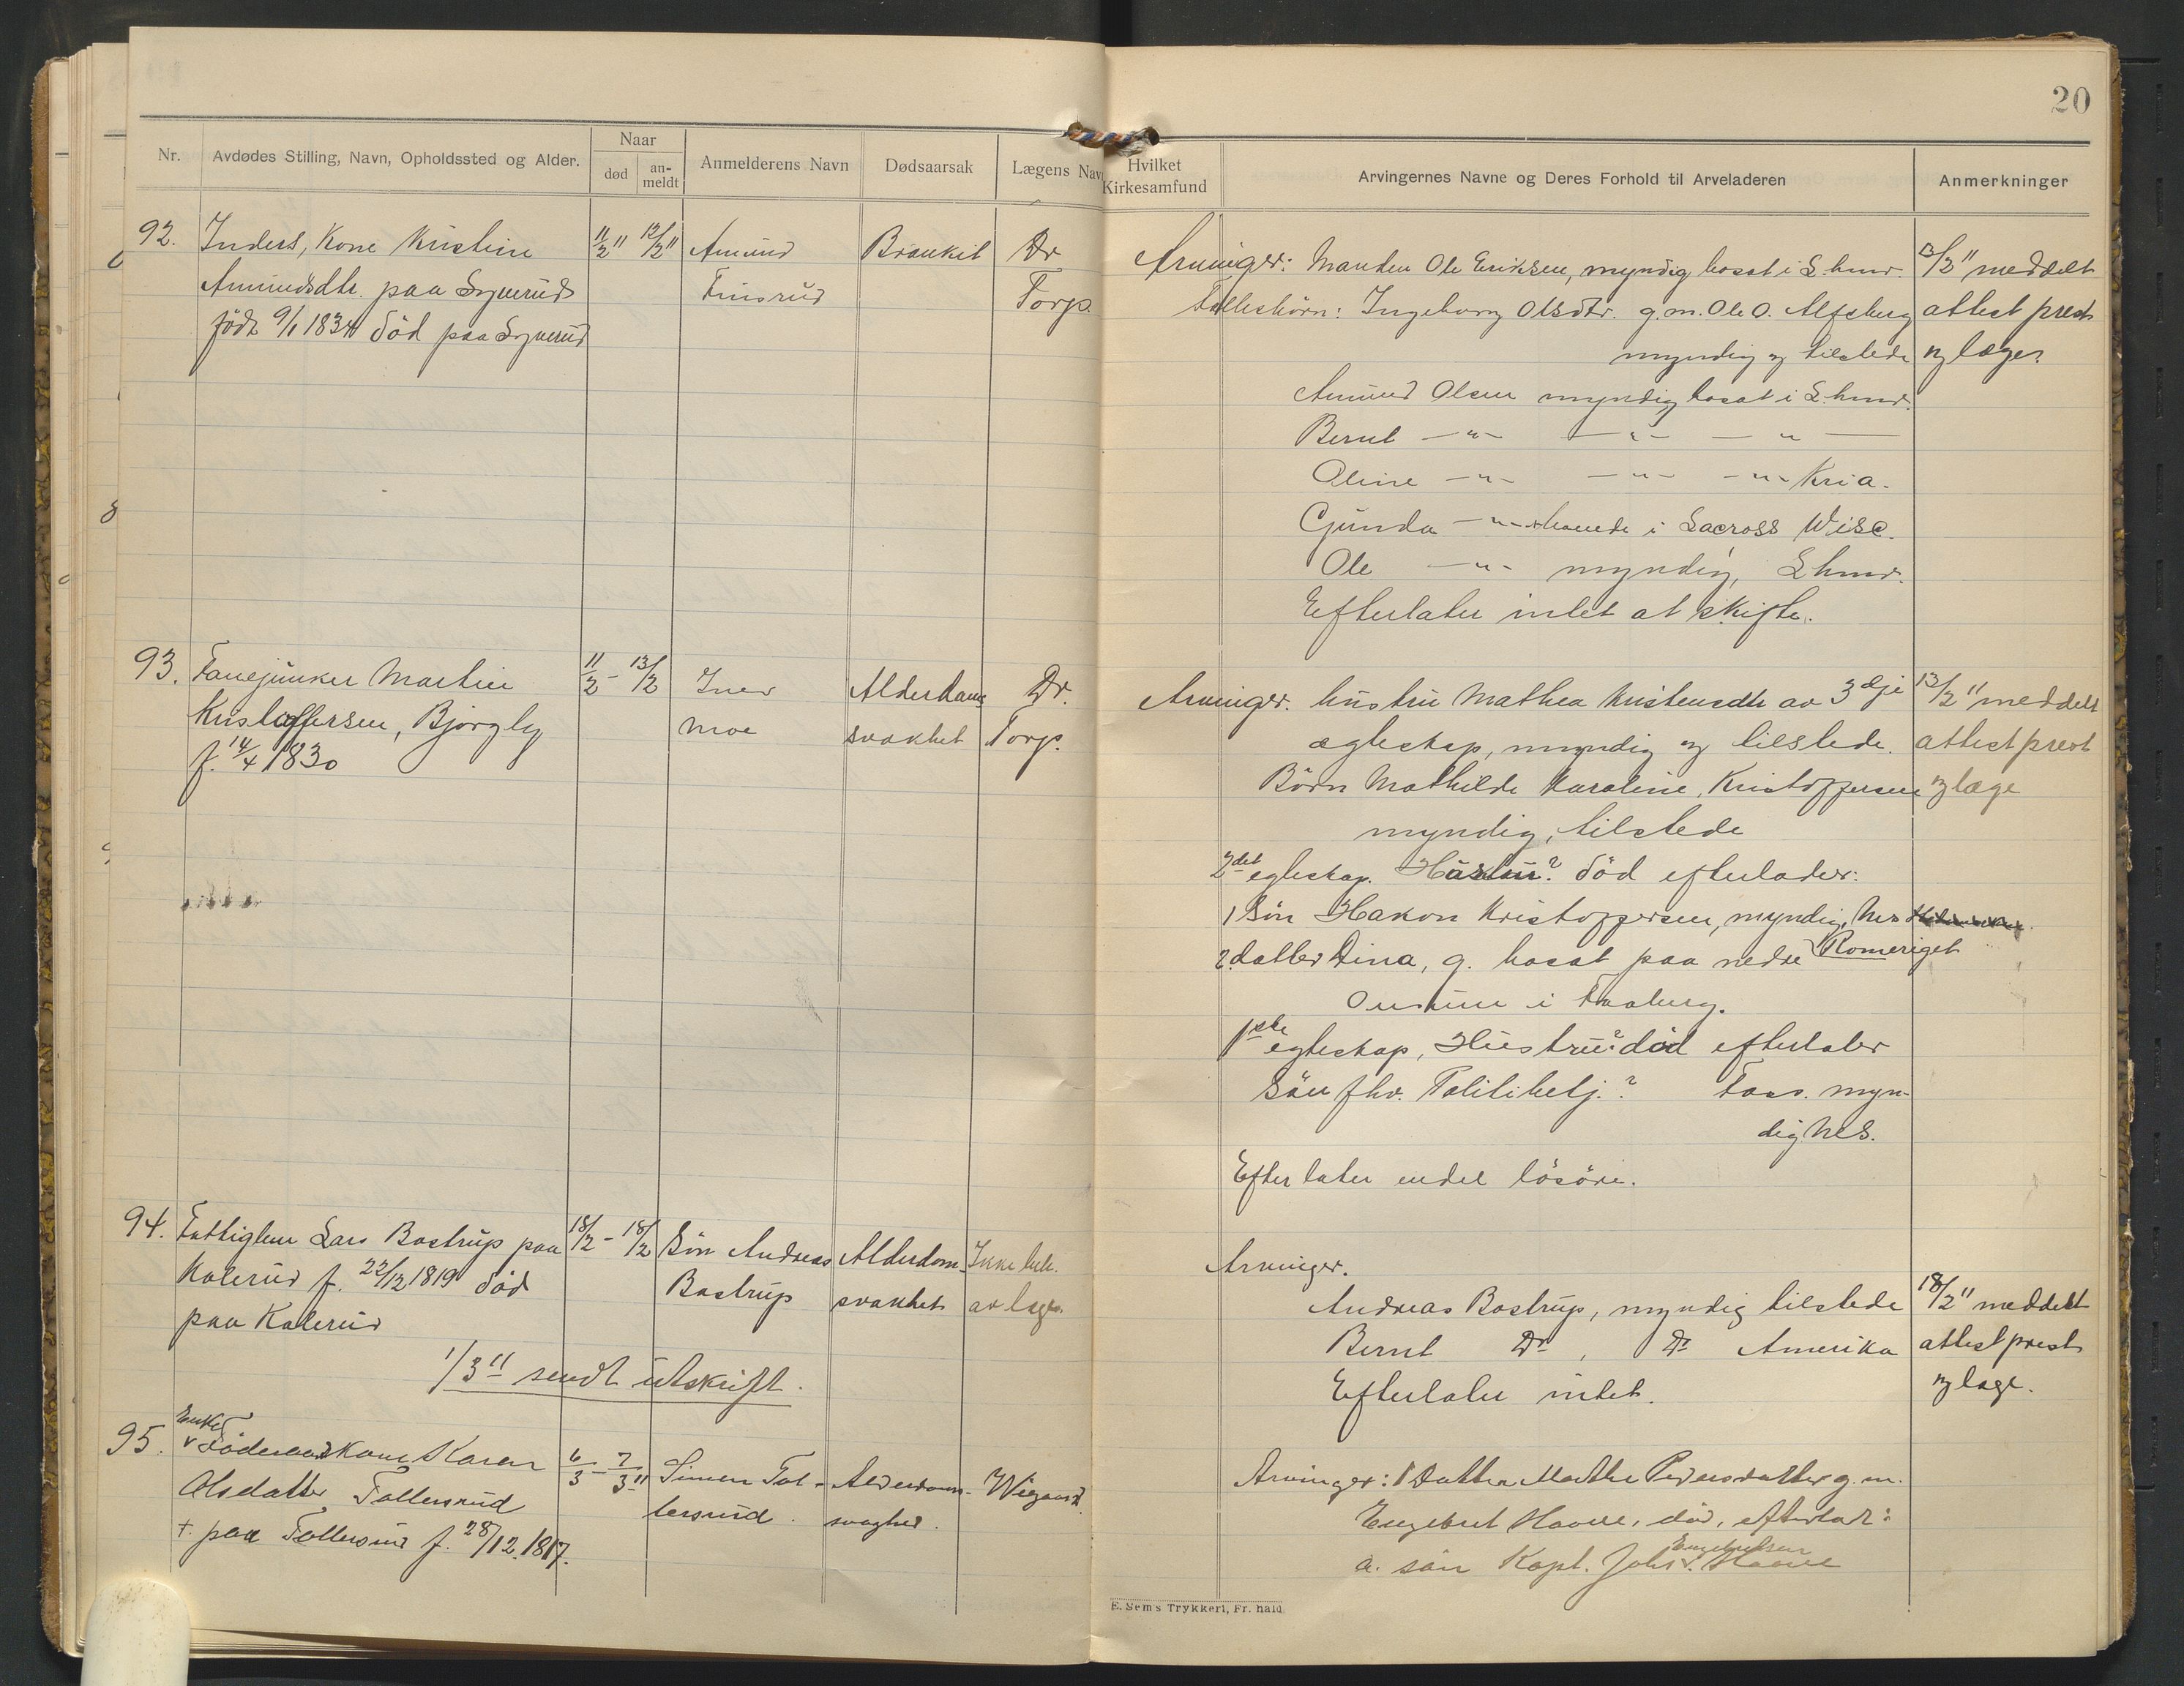 20
Nr.
Avdødes Stilling, Navn, Opholdssted og Alder.
Naar
død
an-
meldt
Anmelderens Navn
Dødsaarsak
Lægens Navn
Hvilket
Kirkesamfund
Arvingernes Navne og Deres Forhold til Arveladeren
Anmerkninger
92. Inders, Kone Kristine
11/2 " 12/2 "
Amund
Finsrud
Brankit
Dr
Torp.
Amundsdtr. paa
født 9/1 1834 død paa
Arvinger: Manden Ole Eriksen, myndig bosat i L.hmr.
Fællesbørn: Ingeborg Olsdtr. g.m. Ole O. Alfsberg
myndig og tilstede
Amund Olsen myndig bosat i L.hmr.
Bernt -"- -"- -"-
Oline -"- -"- -"- Kria.
Gunda -"- i Lacross Wisc.
Ole -"- myndig, Lhmr.
Efterlater intet at skifte.
13/2 " meddelt
attest prest
og læge.
93. Fanejunker Martin
Kristoffersen, Bjørgly
f. 14/4 1830
11/2 - 13/2
Iver
Moe
Alderdoms
svakhet
Dr.
Torp.
Arvinger. hustru Mathea Kristensdtr av 3dje
ægteskap, myndig og tilstede.
Børn Mathilde Karoline Kristoffersen
myndig, tilstede
2det egteskap. Hustru? død efterlader:
1 søn Hakon Kristoffersen, myndig, Nes
Romeriget
2 datter Dina, g. bosat paa nedre
i Faaberg.
1ste egteskap, Hustru? død efterlater
Søn fhv. Politibetj.? Faas. myn-
dig Nes.
Efterlater endel løsøre.
13/2 " meddelt
attest prest
og læge
94. Fattiglem Lars Bastrup paa
Kalerud f. 22/12 1819 død
paa Kalerud
18/2 - 18/2
Søn Andreas
Bastrup
Alderdom-
svakhet
Ikke beh.
av læge.
Arvinger.
Andreas Bastrup, myndig tilstede
Bernt Do, Do Amerika
Efterlater intet.
18/2 " meddelt
attest prest
og læge.
1/3 " sendt utskrift.
95.
Enke
Føderaadskone Karen
Olsdatter, Tollersrud
+ paa Tollersrud f. 28/12.1817.
6/3 - 7/3 "
Simen Tol-
lersrud.
Alderdoms-
svaghed.
Wiegaard
Arvinger: 1 Datter Marthe Pedersdatter g.m.
Engebret Haave, død, efterlat:
Engebretsen
a. søn Kapt. Johs. Haave
E. Sem's Trykkeri, Fr. hald.